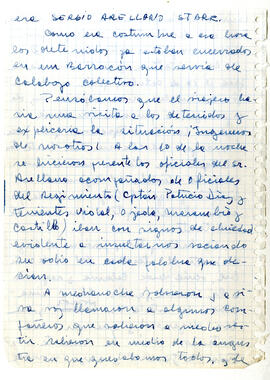 era SERGIO ARELLANO STARK.
Como era costumbre a esa hora
los detenidos ya estaban encerrados
en un barracón que servía de
calabozo colectivo.
Pensábamos que el viajero ha-
ría una visita a los detenidos y
explicaría la situación ¡ingenuos
de nosotros! A las 10 de la noche
se hicieron presente los oficiales del Sr.
Arellano acompañados de Oficiales
del Regimiento (Cptán Patricio Díaz y
tenientes Vidal, Ojeda, Marambio y
Castillo) iban con signos de ebriedad
evidente a insultarnos vaciando
su odio en cada palabra que de-
cían.
A medianoche volvieron y a
viva voz llamaron a algunos com-
pañeros que salieron a medio ves-
tir salieron en medio de la angus-
tia en que quedábamos todos, y de